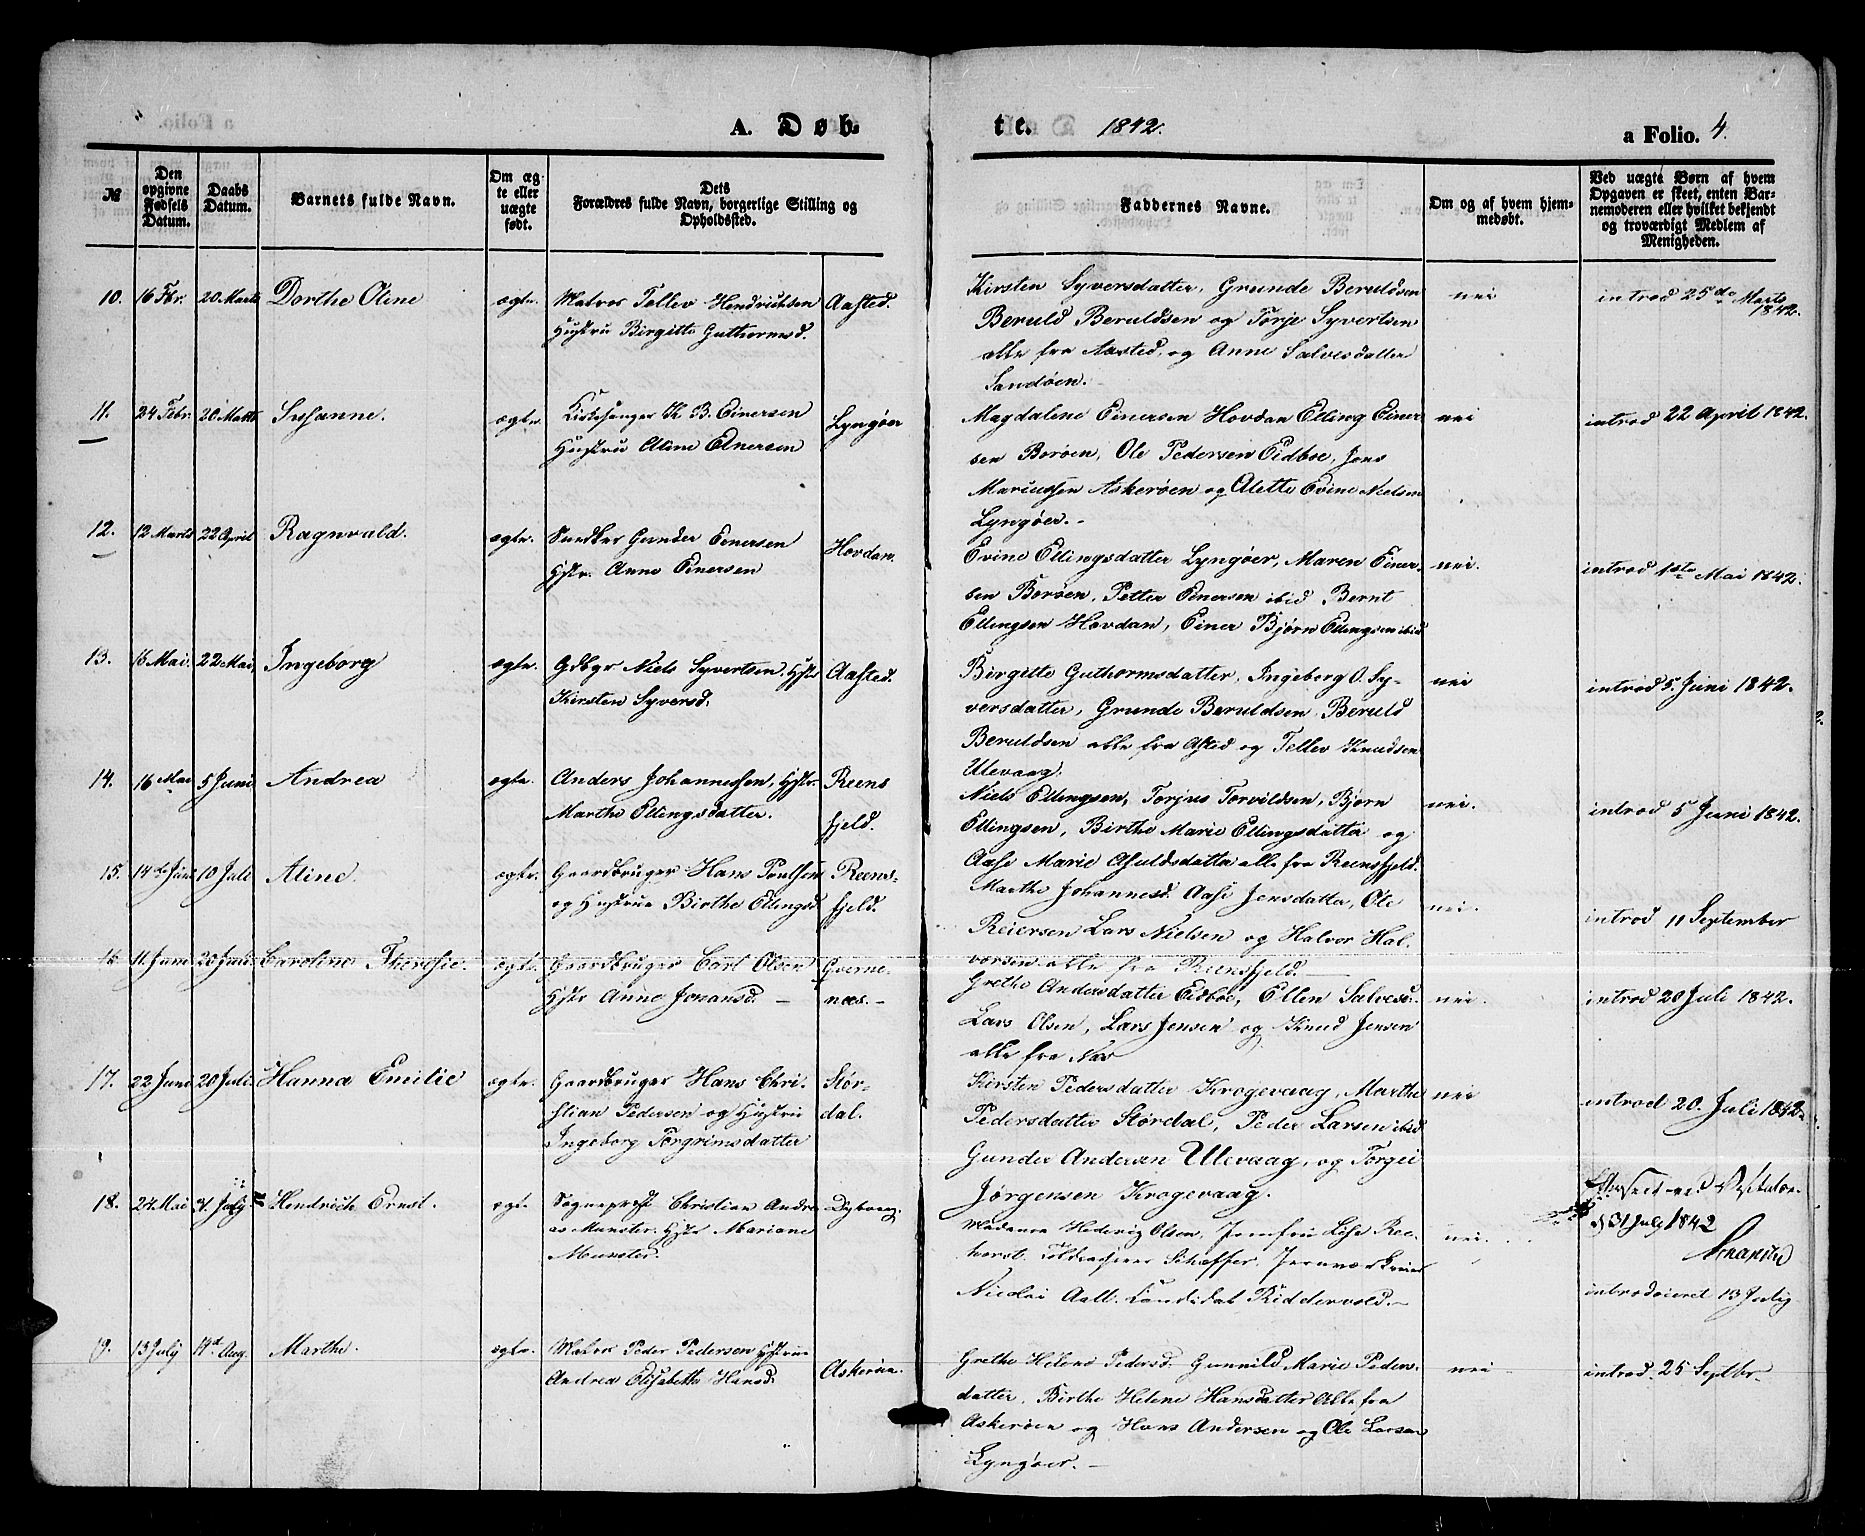 A. Døb-
te. 1842.
a Folio. 4.
№
Den opgivne Fødsels Datum.
Daabs Datum.
Barnets fulde Navn.
Om ægte eller uægte født.
Dets Forældres fulde Navn, borgerlige Stilling og Opholdssted.
Faddernes Navne.
Om og af hvem hjemmedøbt.
Ved uægte Børn af hvem Opgaven er skeet, enten Barnemoderen eller hvilket bekjendt og troværdigt Medlem af Menigheden.
10. 16 Fbr. 20 Marts Dorthe Oline ægte. Matros Tellev Hendrichsen Aasted.
Hustru Birgitte Guthormsd.
Kirsten Syversdatter, Grunde Beruldsen nei introd 25de Marts 1842.
Beruld Beruldsen og Torje Syvertsen
alle fra Aasted, og Anne Salvesdatter
Sandøen.
11. 24 Febr. 20 Marts Susanne. ægte. Kirkesanger K. B. Einersen Lyngøer
Hustru Aline Einersen
Magdalene Einersen Hovdan Elling Einer- nei introd 22 April 1842.
sen Borøen, Ole Pedersen Eidboe, Jens
Mariussen Askerøen og Alette Evine Nielsen
Lyngøer.-
12. 12 Marts 22 April Ragnvald. ægte. Gunder Einersen Hovdan.
Hstr. Anne Einersen
Evine Ellingsdatter Lyngøer, Maren Einer- nei. introd 1ste Mai 1842.
sen Borøen, Petter Einersen ibid Bernt
Ellingsen Hovdan, Einer Bjørn Ellingsen ibid
13. 16 Mai. 22 Mai, Ingeborg ægte. Gdbgr Niels Syvertsen, Hstr Aasted.
Kirsten Syversd.
Birgitte Guthormsdatter, Ingeborg O. Sy- nei introd 5. Juni 1842.
versdatter, Grunde Beruldsen, Beruld
Beruldsen alle fra Aasted og Tellev Knudsen
Ulevaag.
14. 16 Mai 5 Juni Andrea ægte. Anders Johannessen, Hstr. Reens
Marthe Ellingsdatter. fjeld.
Niels Ellingsen, Torjus Torvildsen, Bjørn nei. introd 5 Juni 1842.
Ellingsen, Birthe Marie Ellingsdatter og
Aase Marie Asuldsdatter alle fra Reensfjeld.
15. 14de Juni 10 Juli Aline. ægte. Gaardbruger Hans Poulsen Reens-
og Hustrue Birthe Ellingsd fjeld.
Marthe Johannesd. Aase Jensdatter, Ole nei. introd 11 September
Reiersen Lars Nielsen og Halvor Hal-
vorsen alle fra Reensfjeld.
16 11. Juni 20 Juli Caroline Theresie. ægte. Gaardbruger Carl Olsen Gverne-
Hstr Anne Jonansd. - næs.-
Grethe Andersdatter Eidboe, Ellen Salvesd. nei. introd 20 Juli 1842.
Lars Olsen, Lars Jensen og Knud Jensen
alle fra Næs
17. 22 Juni 20 Juli Hanna Emilie ægte. Gaardbruger Hans Chri- Stør-
stian Pedersen og Hustrue dal.
Ingeborg Torgrimsdatter
Kirsten Pedersdatter Krogevaag, Marthe nei introd 20. Juli 1842.
Pedersdatter Størdal, Peder Larsen ibid
Gunder Andersen Ulevaag, og Torgei
Jørgensen Krogevaag.
18. 24 Mai 31. July Hendrich Ernst. ægt. Sogneprest Christian Andre- Dybvaag.
as Munster, Hstr Mariane
Munster.
Madame Hedevig Olsen, Jomfru Lise Ree- nei.
horst. Toldcasserer Schæffer, Jernværkseier
Nicolai Aall. Candidat Riddervold.-
d 31 July 1842
introduceret 13 July
19. 13 July 14d Aug. Marthe. ægte. Matros Peder Pedersen Hstrue Askerøen.
Andrea Elisabeth Hansd.
Grethe Helene Pedersd. Gunnild Marie Peders- nei introd. 25 Septbr.
datter, Birthe Helene Hansdatter Alle fra
Askerøen og Hans Andersen og Ole Larsen
Lyngøer.-